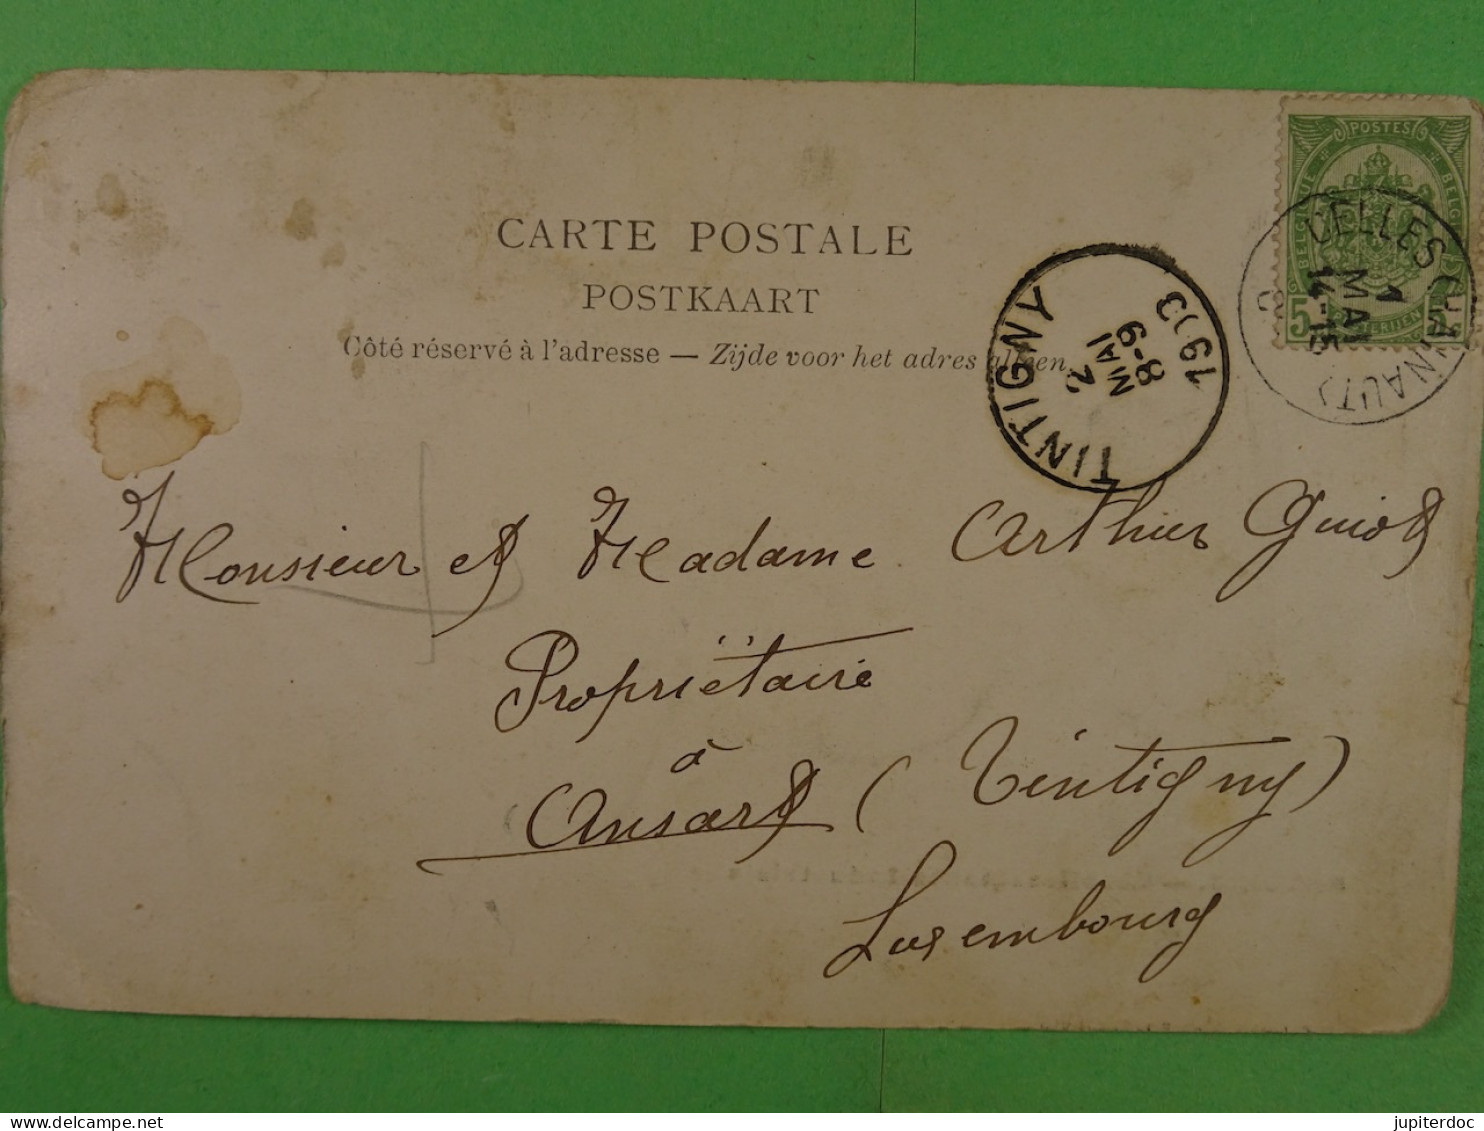 CARTE POSTALE
POSTKAART
Côté réservé à l'adresse — Zijde voor het adres alleen
POSTES
BELGIQUE
5
CELLES (HAINAUT)
1 MAI
14-15
TINTIGNY
2 MAI
8-9
1903
Monsieur et Madame Arthur Guiot
Propriétaire
à
Ansart (Tintigny)
Luxembourg
jupiterdoc
delcampe.net